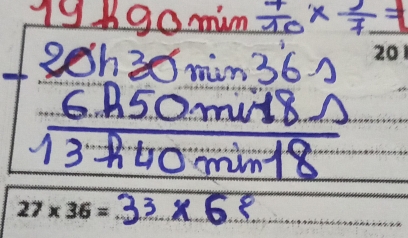 19 h 90 min 7/10 × 5/7 =
- 20 h 30 min 36 s 20
6 h 50 min 18 s
13 h 40 min 18
27 x 36 = 3³ x 6²